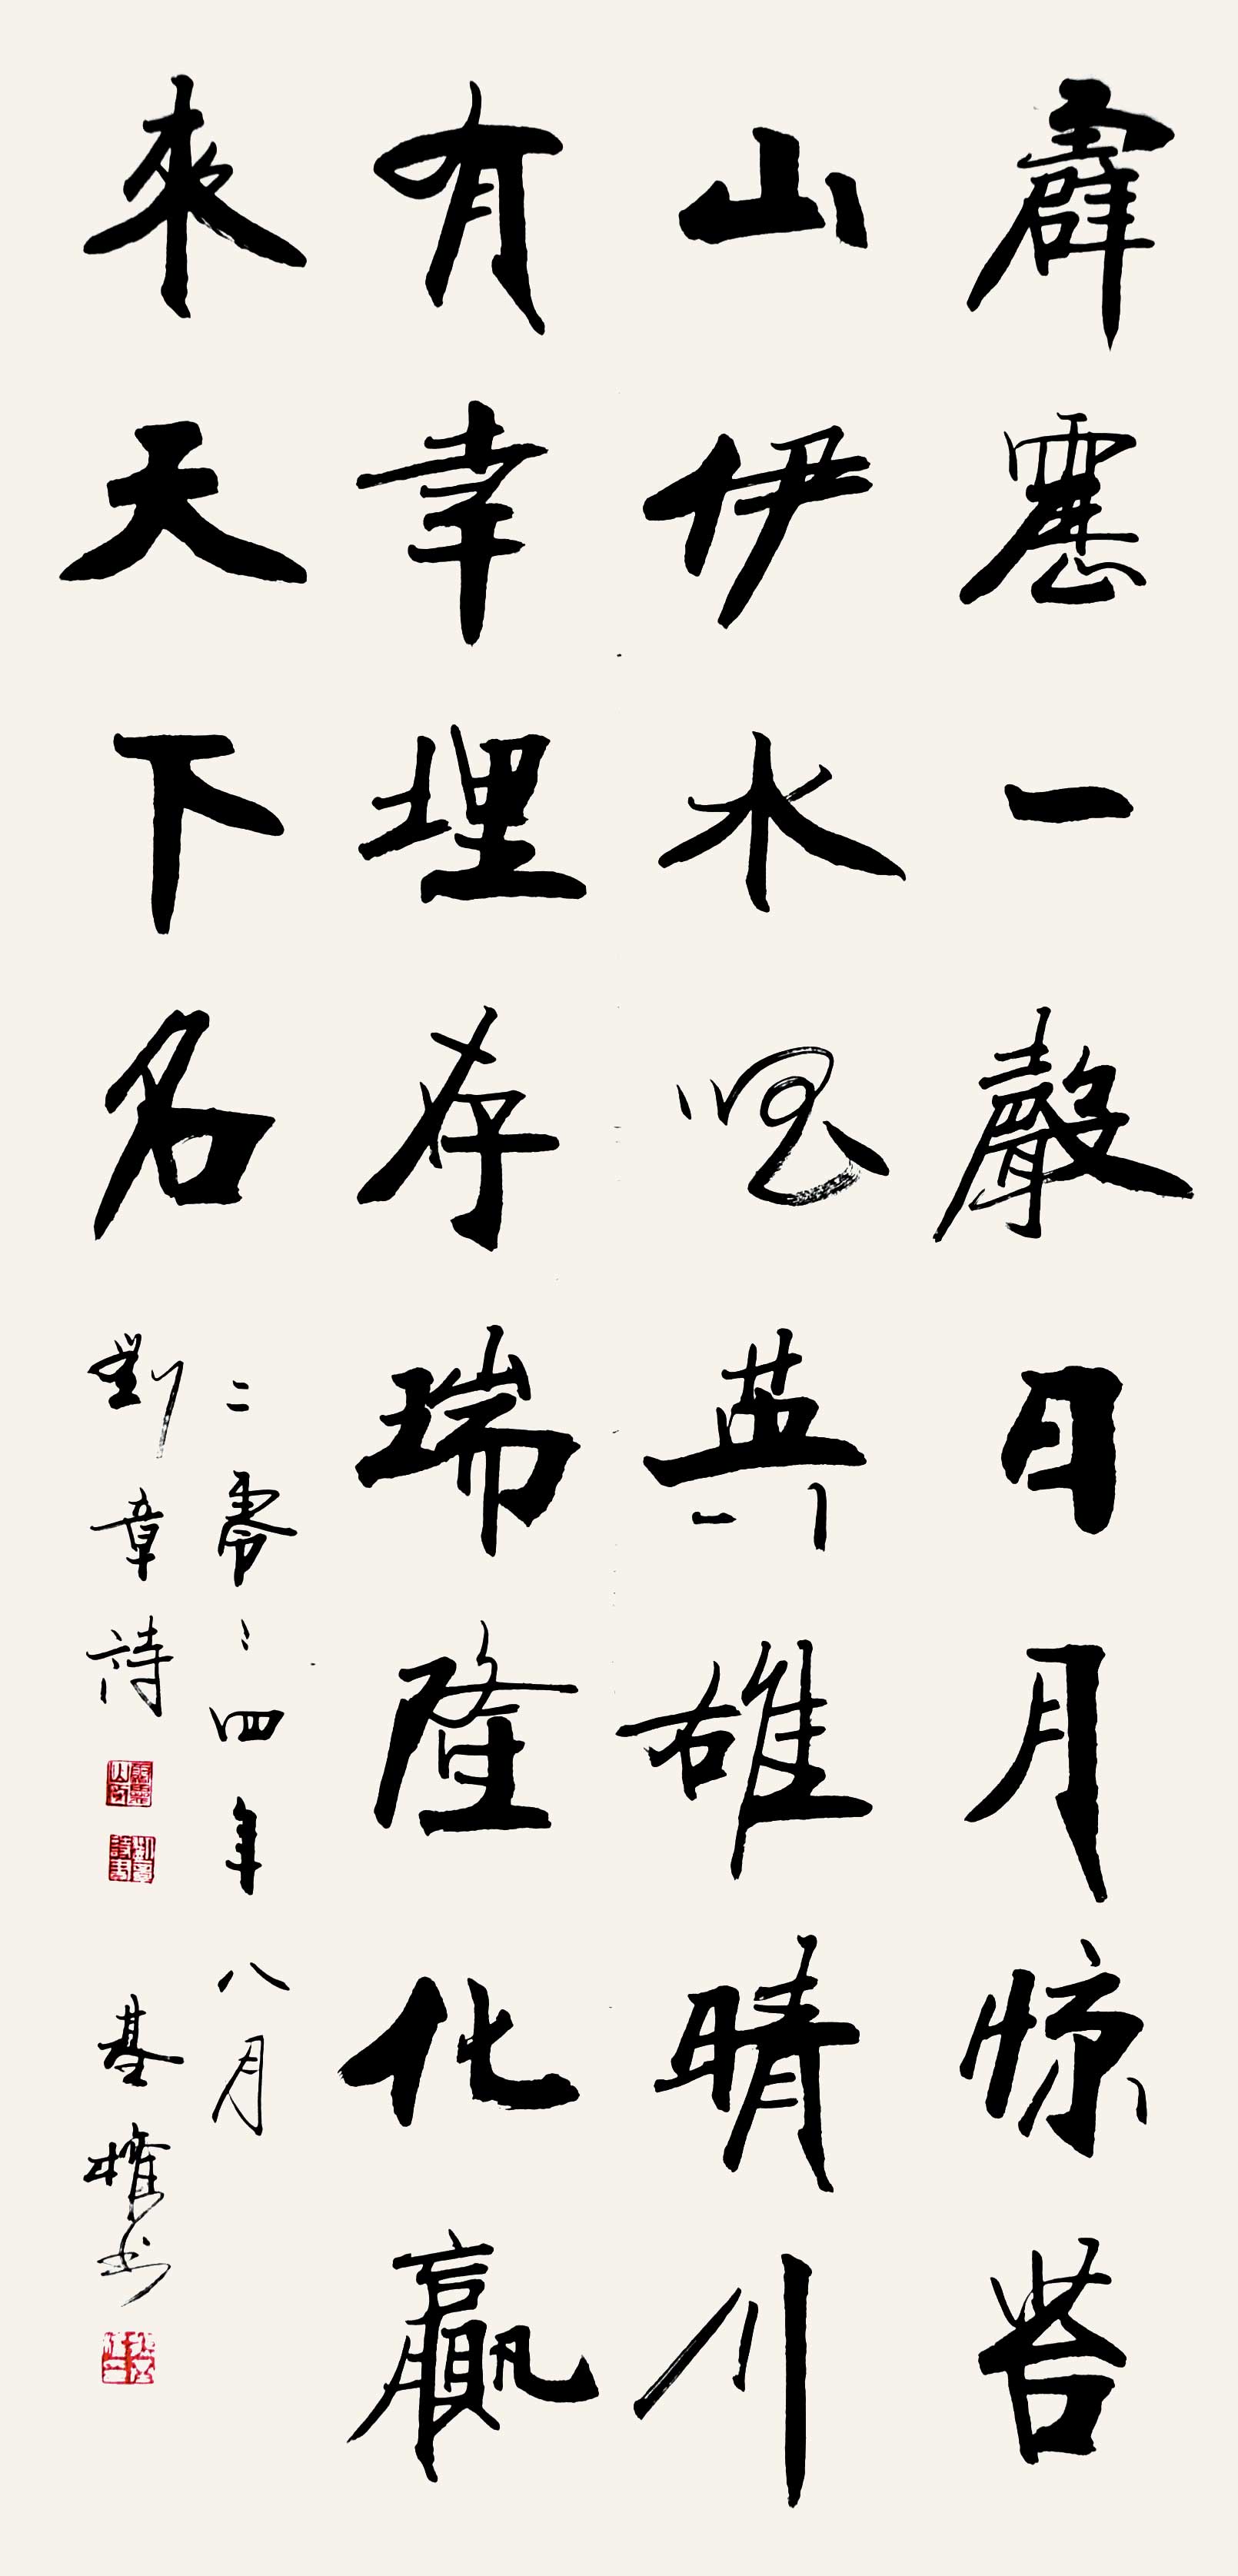 霹靂一聲日月惊苔
山伊水英雄晴川
有幸埋存瑞隆化贏
來天下名
二零二四年八月
劉章詩 基權书